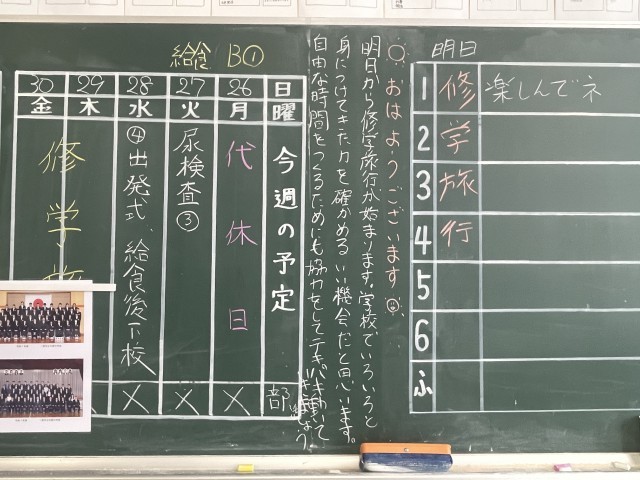 給食 B①
日 26 27 28 29 30
曜 月 火 水 木 金
今週の予定
代休日
尿検査③
④出発式、給食後下校
修学旅
部 × × ×
おはようございます
明日から修学旅行が始まります。学校でいろいろと
身につけてきた力を確かめるいい機会だと思います。
自由な時間をつくるためにも協力をしてテキパキ動いて
いきましょう
明日
1 修 楽しんでネ
2 学
3 旅
4 行
5
6
ふ